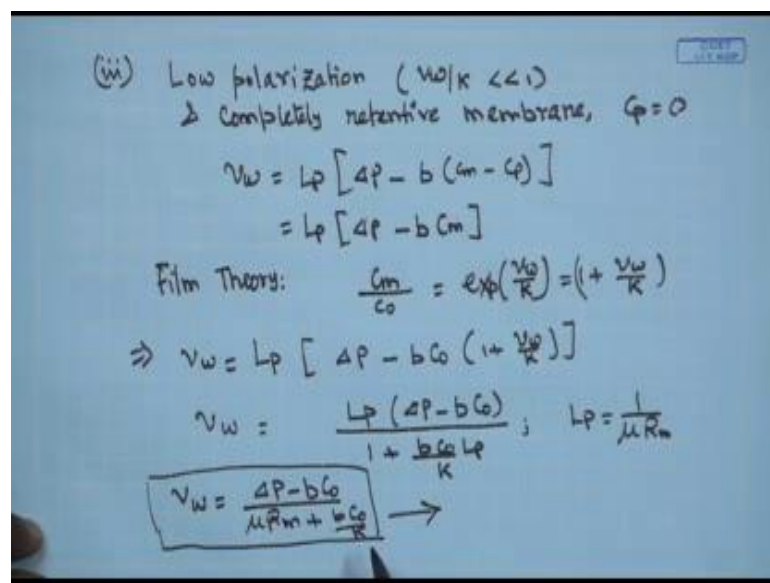 (iii) Low polarization ( Vw/K <<1)
& Completely retentive membrane, Cp=0
Vw = Lp [ΔP - b (Cm - Cp)]
= Lp [ΔP - b Cm]
Film Theory: Cm/Co = exp(Vw/K) = (1 + Vw/K)
⇒ Vw = Lp [ ΔP - bCo (1+ Vw/K)]
Vw = Lp (ΔP-bCo) / 1 + bCo/K Lp ; Lp = 1/μRm
Vw = ΔP-bCo / μRm + bCo/K →